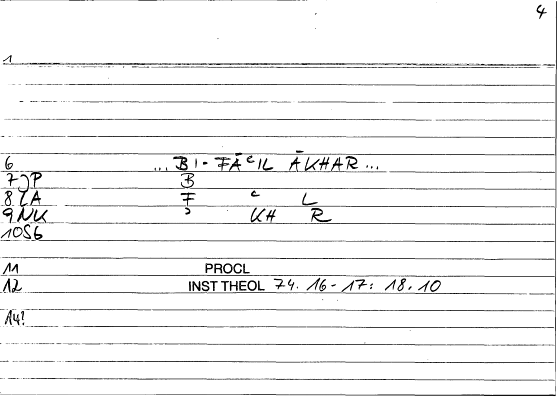 4
1
6 ... BI-FĀʿIL ĀKHAR ...
7 JP B
8 LA F ʿ L
9 NK ʾ KH R
10 SG
11 PROCL
12 INST THEOL 74. 16-17: 18.10
14!